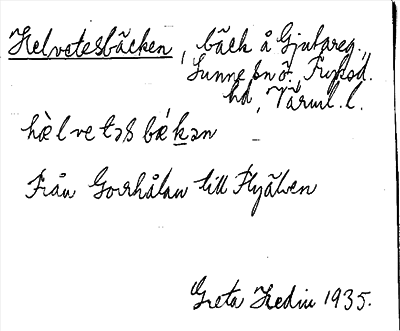 Helvetesbäcken, bäck å Gjutareg.,
Sunne sn ö., Fryksd.
hd, Värml. l.
hæ̀lvetəs bǽkən
Från Gorrhålan till Flyälven
Greta Hedin 1935.